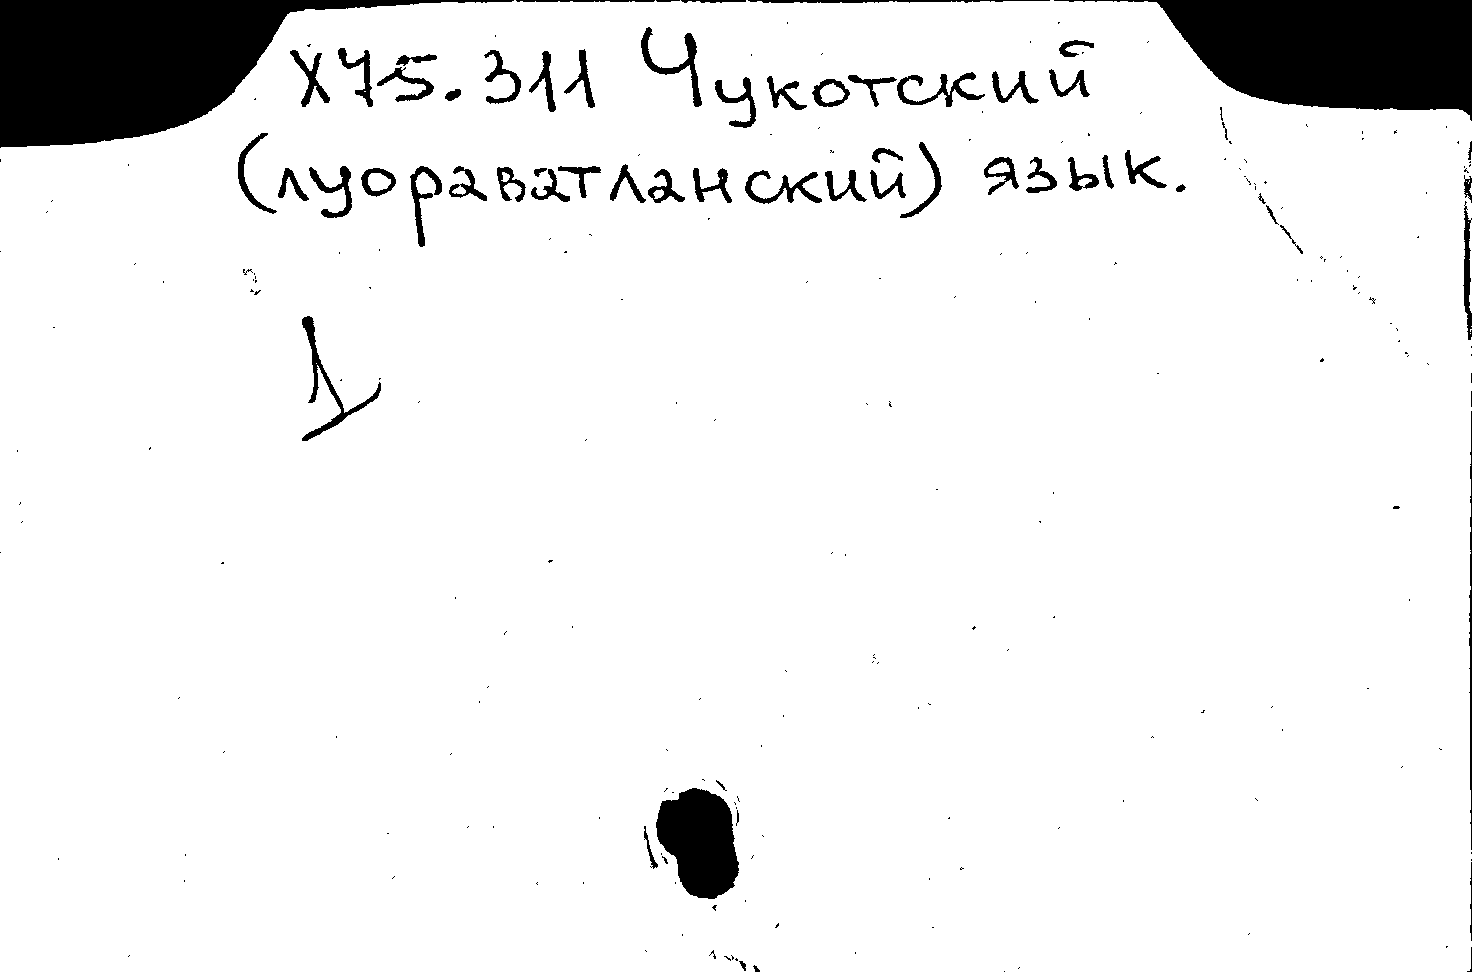 Х75.311 Чукотский
(луораветланский) язык.
1